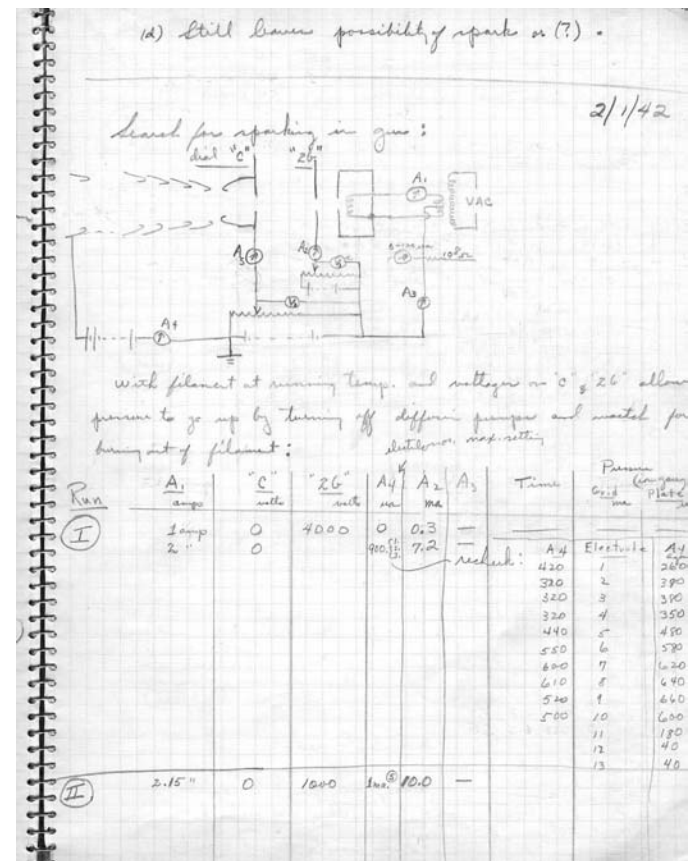 (d) Still leaves possibility of spark or (?) .
2/1/42
Search for sparking in gun :
dial "C" "2G"
A1
VAC
10⁸Ω
A5 A2 V2
A3
V5
A4
With filament at running temp. and voltages on "C" & "2G" allow
pressure to go up by turning off diffusion pumps and watch for
burning out of filament :
electrode no. max. setting
Run A1 amps "C" volts "2G" volts A4 ua A2 ma A3 Time Pressure (ion gauge) Grid ma Plate
I 1 amp 0 4000 0 0.3 —
2 " 0 900. 7.2 — recheck : A4 Electrode A4
420 1 260
320 2 390
320 3 380
320 4 350
440 5 480
550 6 580
600 7 620
610 8 640
520 9 660
500 10 600
11 180
12 40
13 40
II 2.15 " 0 1000 1ma. ⑤ 10.0 —